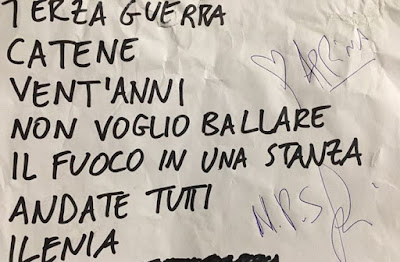 TERZA GUERRA
CATENE
VENT'ANNI
NON VOGLIO BALLARE
IL FUOCO IN UNA STANZA
ANDATE TUTTI
ILENIA
N.P.S